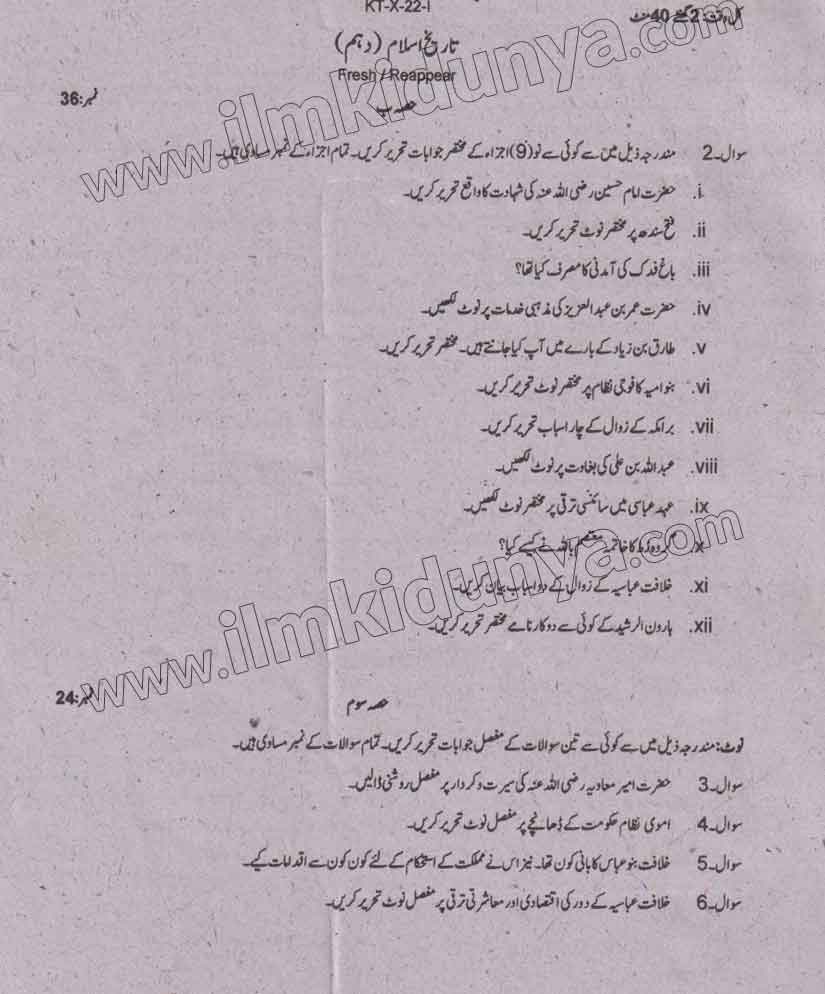 KT-X-22-I
کل وقت: 2 گھنٹے 40 منٹ
تاریخ اسلام (دہم)
Fresh / Reappear
نمبر:36
حصہ ب
سوال۔2 مندرجہ ذیل میں سے کوئی سے نو (9) اجزاء کے مختصر جوابات تحریر کریں۔ تمام اجزاء کے نمبر مساوی ہیں۔
i. حضرت امام حسین رضی اللہ عنہ کی شہادت کا واقع تحریر کریں۔
ii. فتح سندھ پر مختصر نوٹ تحریر کریں۔
iii. باغ فدک کی آمدنی کا مصرف کیا تھا؟
iv. حضرت عمر بن عبدالعزیز کی مذہبی خدمات پر نوٹ لکھیں۔
v. طارق بن زیاد کے بارے میں آپ کیا جانتے ہیں۔ مختصر تحریر کریں۔
vi. بنو امیہ کا فوجی نظام پر مختصر نوٹ تحریر کریں۔
vii. برامکہ کے زوال کے چار اسباب تحریر کریں۔
viii. عبداللہ بن علی کی بغاوت پر نوٹ لکھیں۔
ix. عہد عباسی میں سائنسی ترقی پر مختصر نوٹ لکھیں۔
x. گروہ زط کا خاتمہ معتصم باللہ نے کیسے کیا؟
xi. خلافت عباسیہ کے زوال کے دو اسباب بیان کریں۔
xii. ہارون الرشید کے کوئی سے دو کارنامے مختصر تحریر کریں۔
نمبر:24
حصہ سوم
نوٹ: مندرجہ ذیل میں سے کوئی سے تین سوالات کے مفصل جوابات تحریر کریں۔ تمام سوالات کے نمبر مساوی ہیں۔
سوال۔3 حضرت امیر معاویہ رضی اللہ عنہ کی سیرت و کردار پر مفصل روشنی ڈالیں۔
سوال۔4 اموی نظام حکومت کے ڈھانچے پر مفصل نوٹ تحریر کریں۔
سوال۔5 خلافت بنو عباس کا بانی کون تھا۔ نیز اس نے مملکت کے استحکام کے لئے کون کون سے اقدامات کیے۔
سوال۔6 خلافت عباسیہ کے دور کی اقتصادی اور معاشرتی ترقی پر مفصل نوٹ تحریر کریں۔
www.ilmkidunya.com
www.ilmkidunya.com